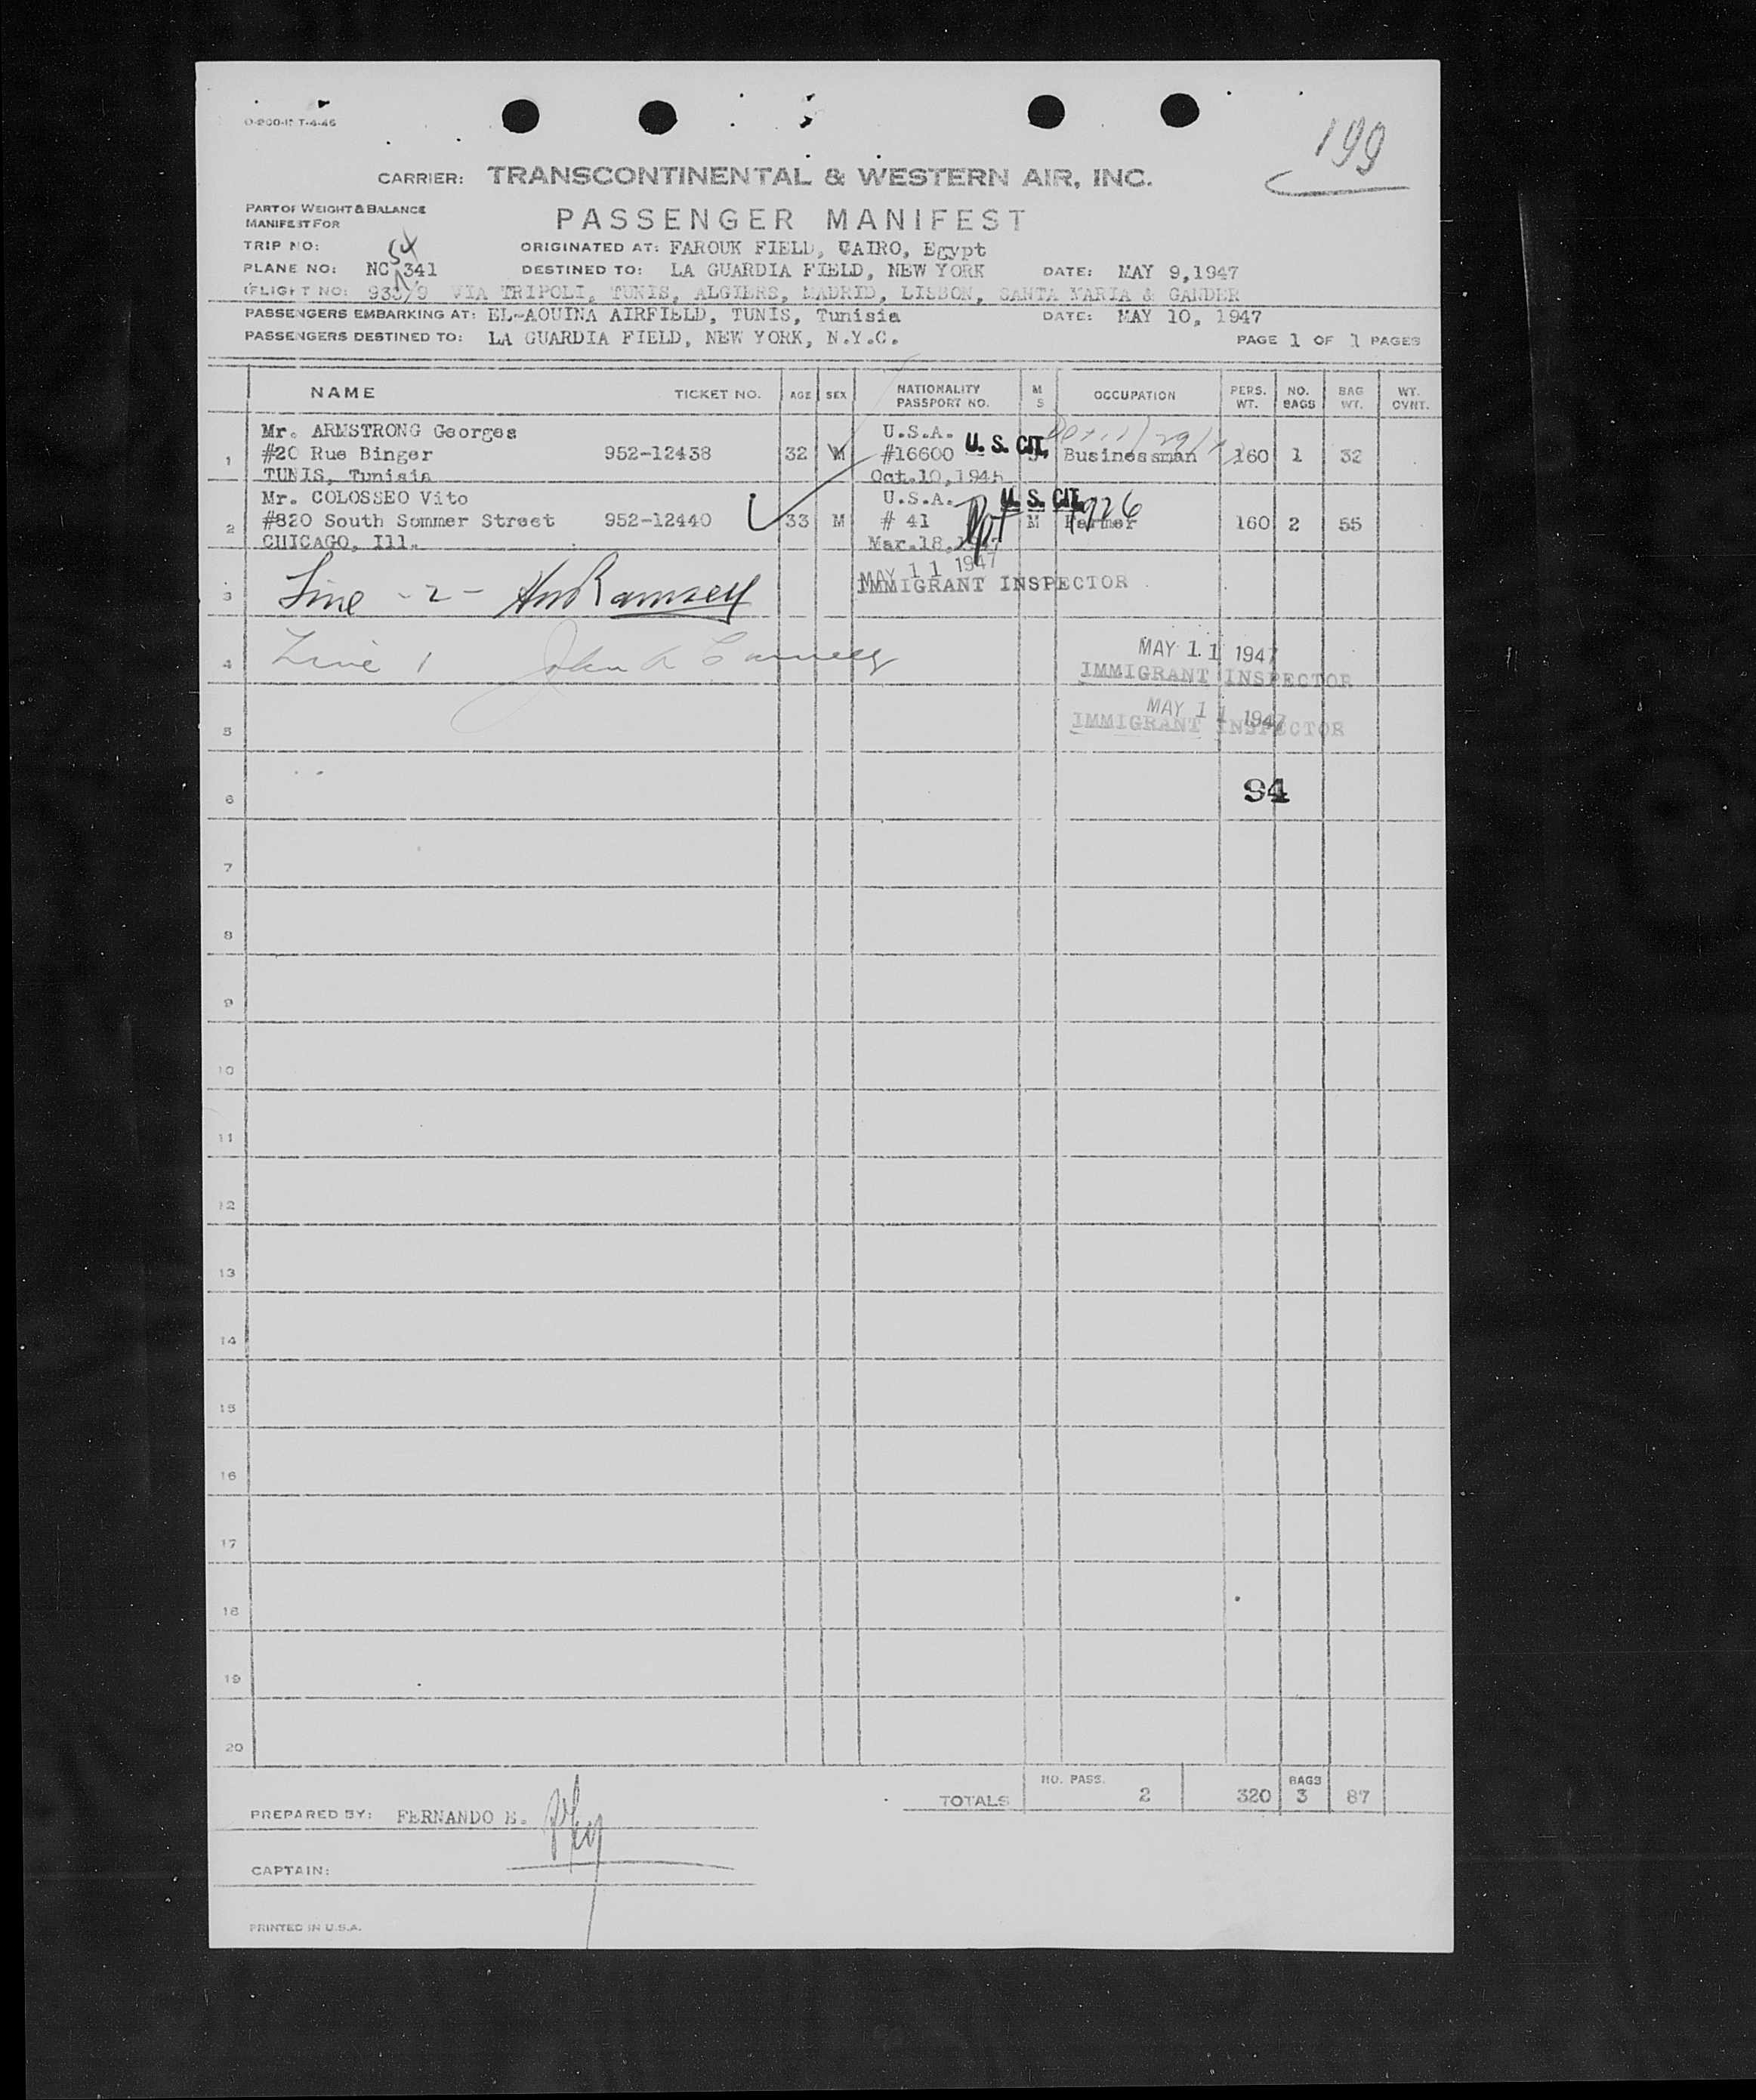 199
CARRIER: TRANSCONTINENTAL & WESTERN AIR, INC.
PART OF WEIGHT & BALANCE
MANIFEST FOR
PASSENGER MANIFEST
TRIP NO:
ORIGINATED AT: FAROUK FIELD, CAIRO, Egypt
PLANE NO: NC 341
54
DESTINED TO: LA GUARDIA FIELD, NEW YORK DATE: MAY 9,1947
FLIGHT NO: VIA TRIPOLI, TUNIS, ALGIERS, MADRID, LISBON, SANTA MARIA & GANDER
PASSENGERS EMBARKING AT: EL-AOUINA AIRFIELD, TUNIS, Tunisia DATE: MAY 10, 1947
PASSENGERS DESTINED TO: LA GUARDIA FIELD, NEW YORK, N.Y.C. PAGE 1 OF 1 PAGES
NAME TICKET NO. AGE SEX NATIONALITY PASSPORT NO. M S OCCUPATION PERS. WT. NO. BAGS BAG WT. WT. CVNT.
Mr. ARMSTRONG Georges U.S.A. U. S. CIT.
1 #20 Rue Binger 952-12438 32 M #16600 Businessman 160 1 32
TUNIS, Tunisia Oct.10,1945
Mr. COLOSSEO Vito U.S.A. U. S. CIT.
2 #820 South Sommer Street 952-12440 33 M # 41 M Farmer 160 2 55
CHICAGO, Ill. Mar.18,1947
MAY 11 1947
3 Line -2- Ramsey IMMIGRANT INSPECTOR
4 Line 1 John MAY 11 1947
IMMIGRANT INSPECTOR
MAY 11 1947
5 IMMIGRANT INSPECTOR
6 94
7
8
9
10
11
12
13
14
15
16
17
18
19
20
TOTALS NO. PASS. 2 320 BAGS 3 87
PREPARED BY: FERNANDO E.
CAPTAIN:
PRINTED IN U.S.A.